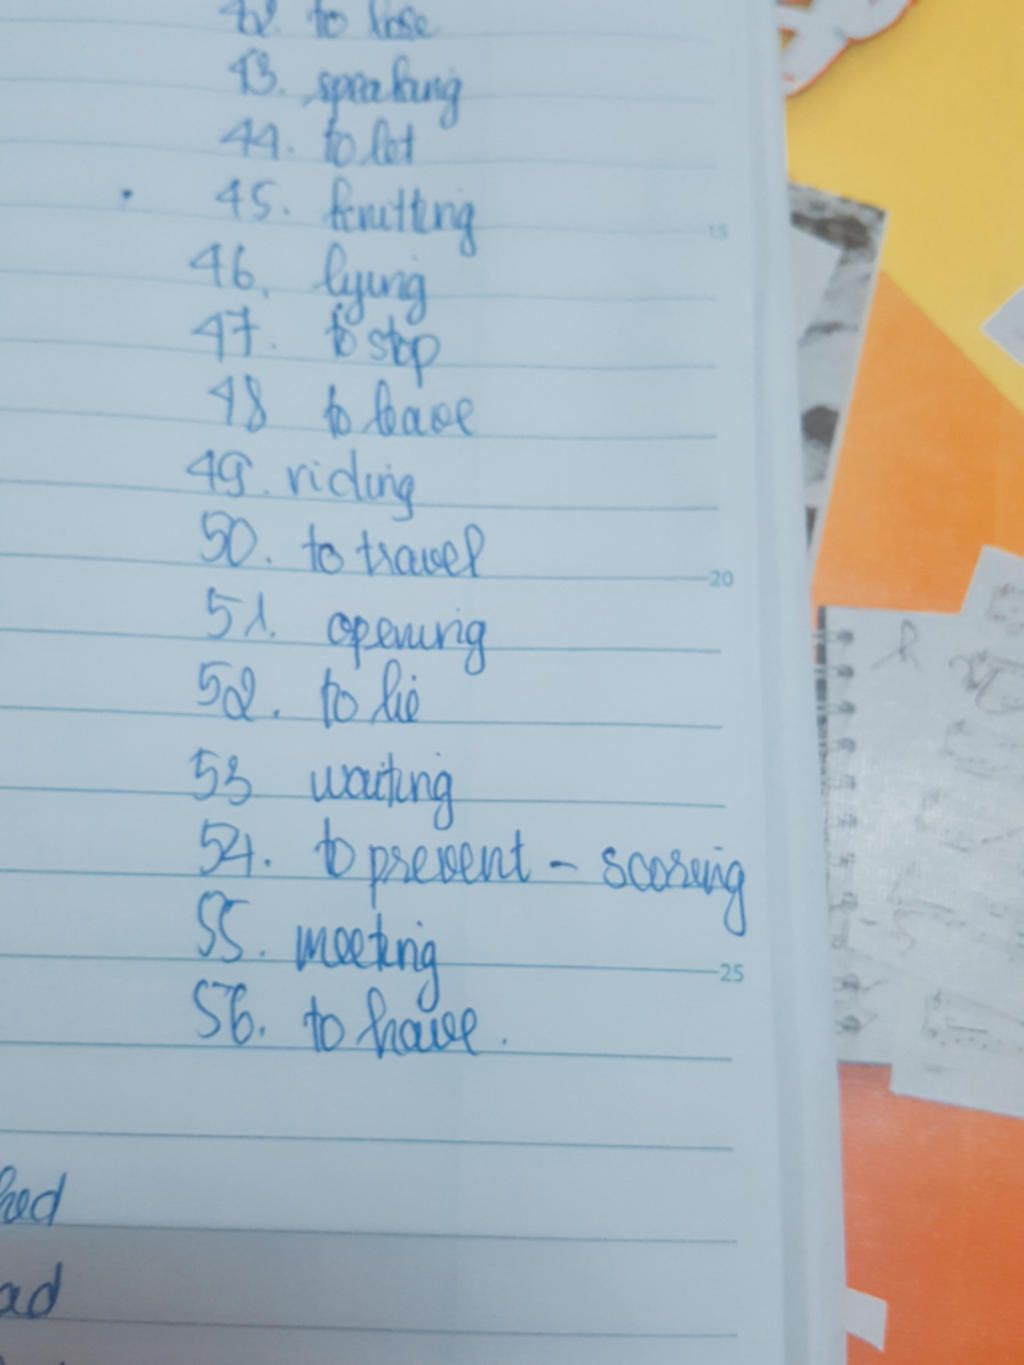 42. to lose
43. speaking
44. to let
45. knitting
46. lying
47. to stop
48 to leave
49. riding
50. to travel
51. opening
52. to lie
53 waiting
54. to prevent - scoring
55. meeting
56. to have.
15
20
25
ad